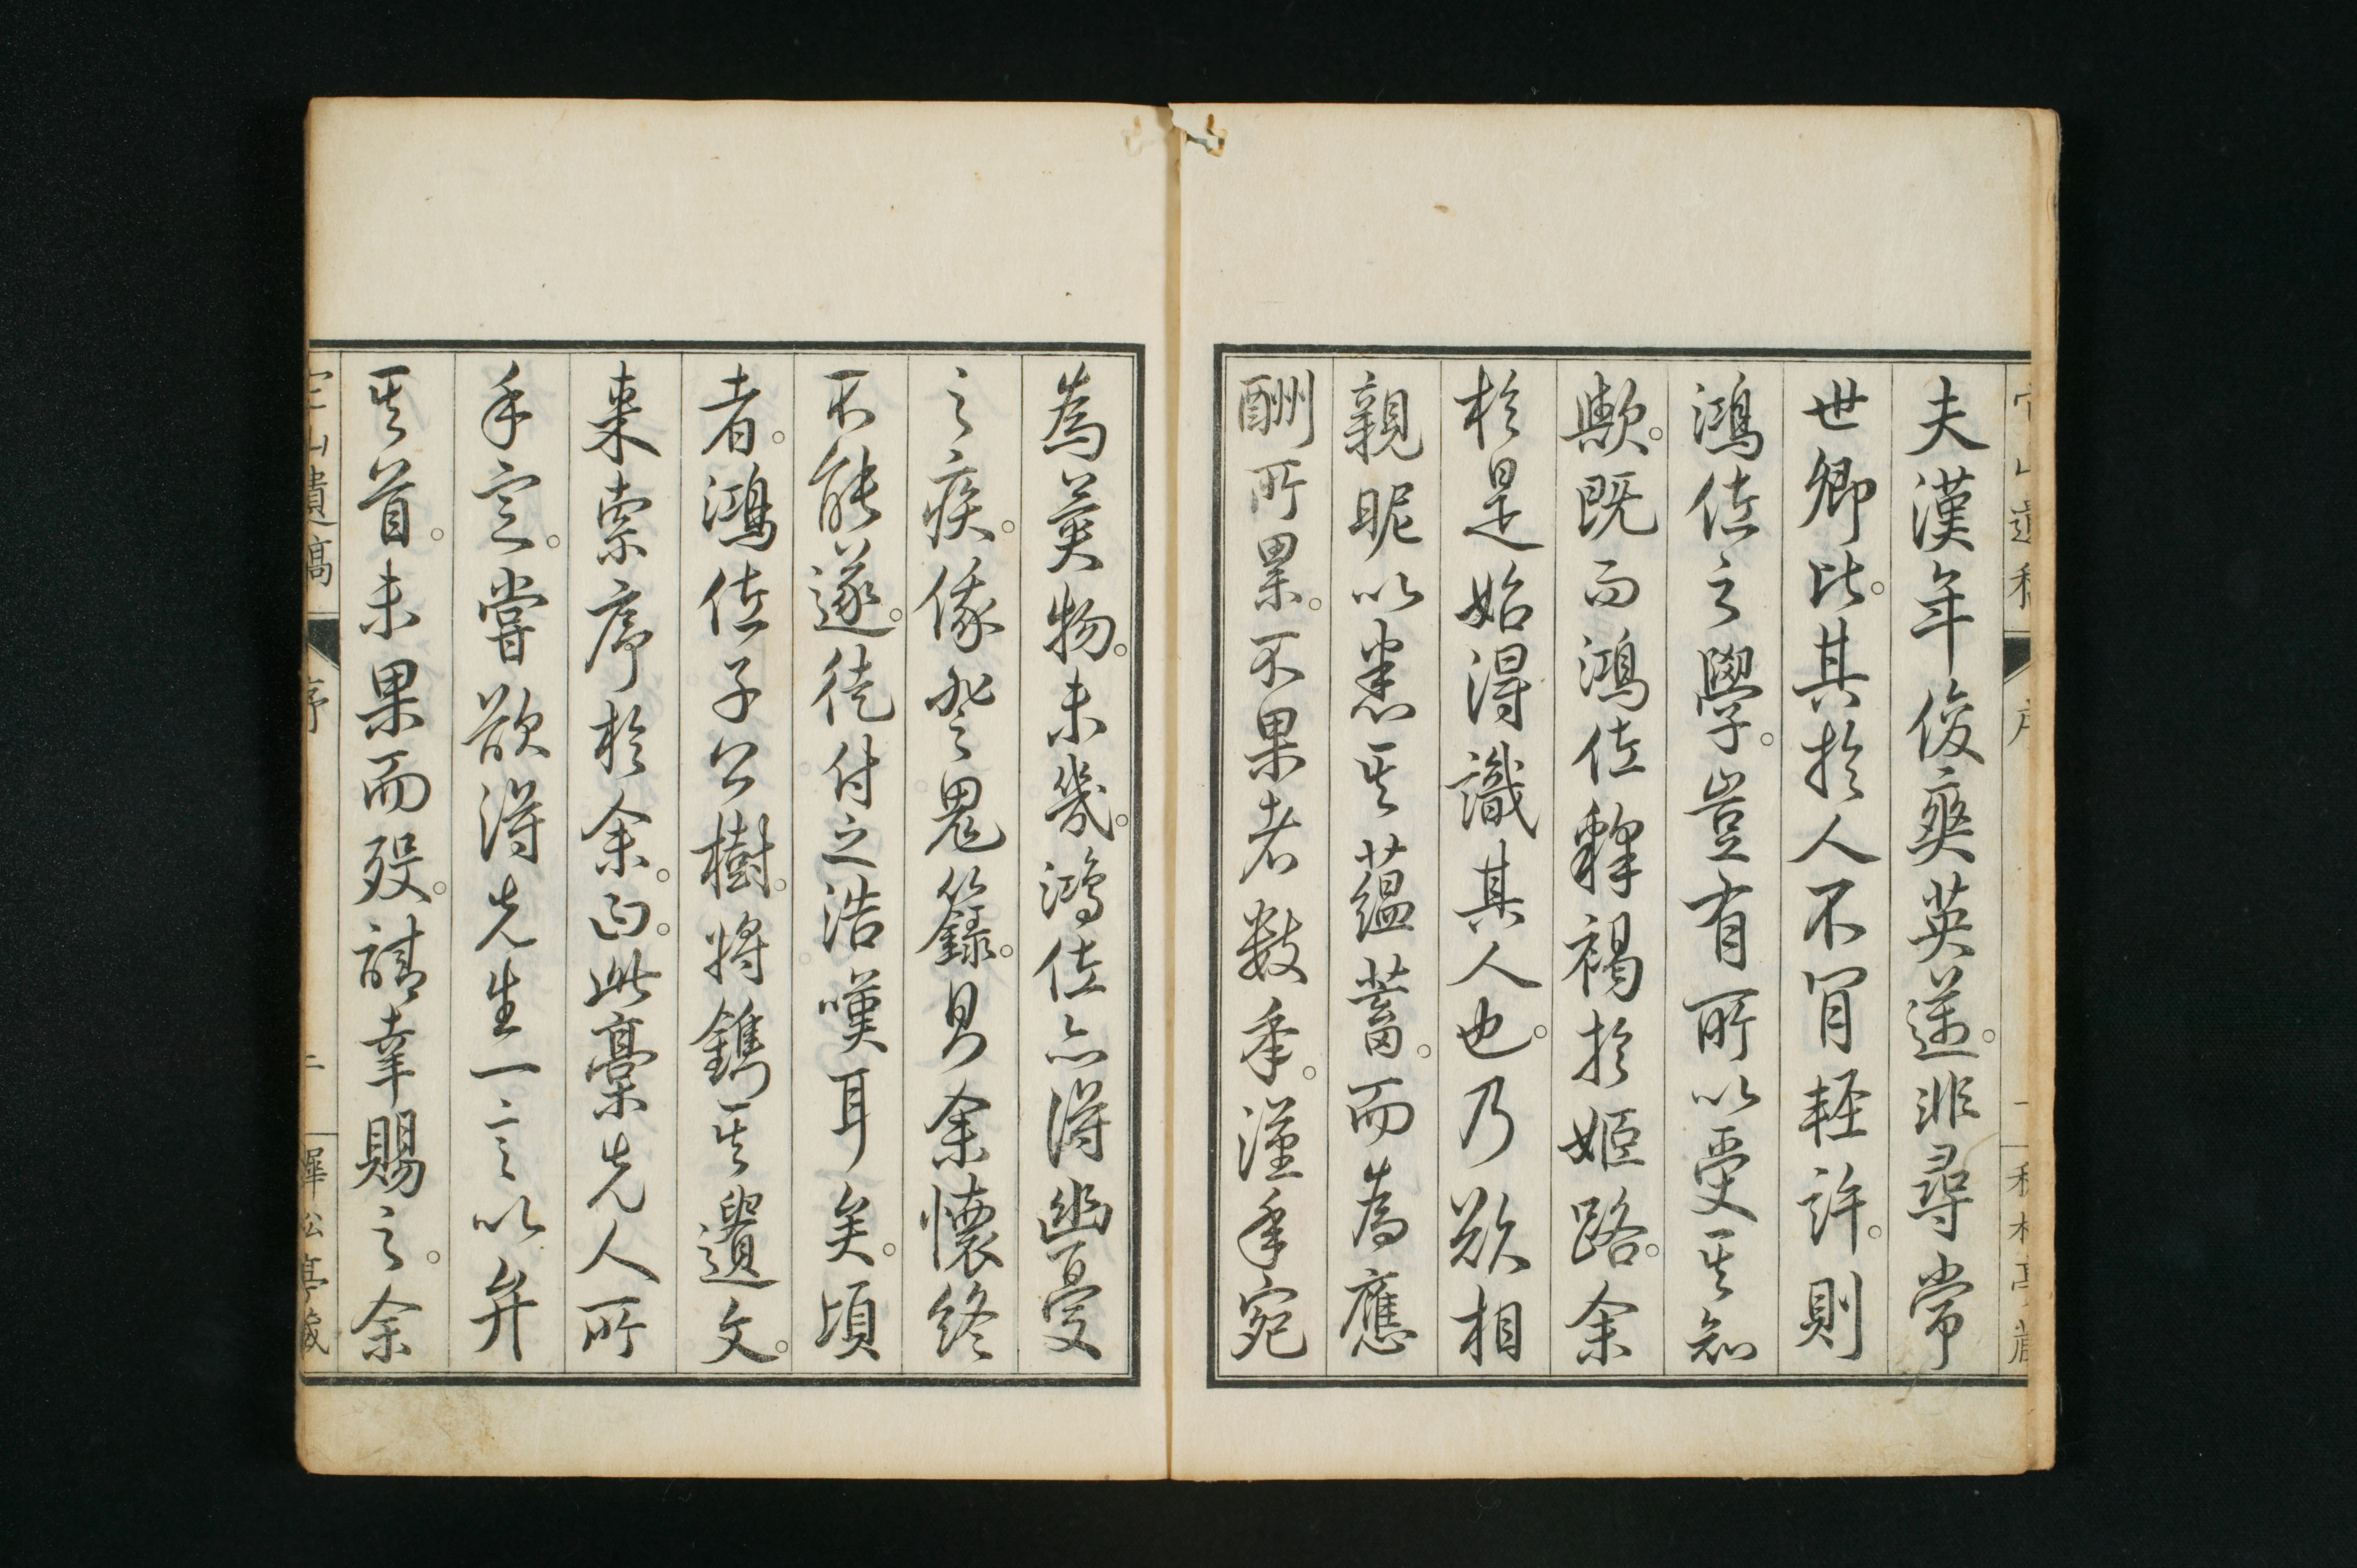 夫漢年俊爽英邁。非尋常
世卿比。其於人不肎輕許。則
鴻佐之學。豈有所以受其知
歟。既而鴻佐釋褐於姬路。余
於是始得識其人也。乃欲相
親昵以悉其蘊蓄。而為應
酬所累。不果者數年。漢年宛
為異物。未幾。鴻佐亦得幽憂
之疾。倐登鬼籙。則余懷終
不能遂。徒付之浩嘆耳矣。頃
者。鴻佐子公樹。將鐫其遺文。
来索序於余。曰。此稾先人所
手定。嘗欲得先生一言以弁
其首。未果而歿。請幸賜之。余
山遺稿 序 二 犀松亭藏